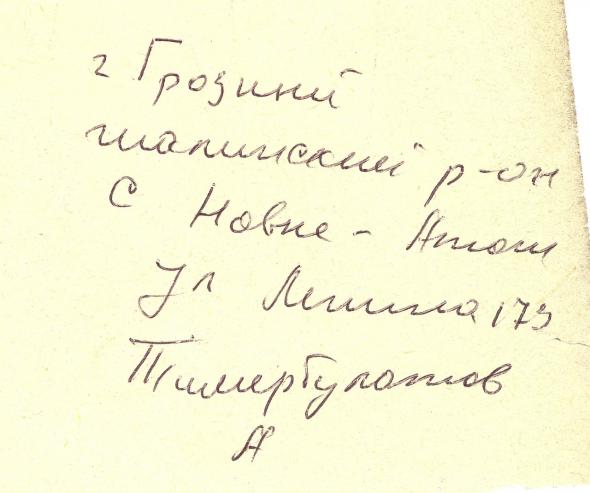 г Грозний
шалинский р-он
с Новые - Атаги
Ул Ленина 173
Тимербулатов
А